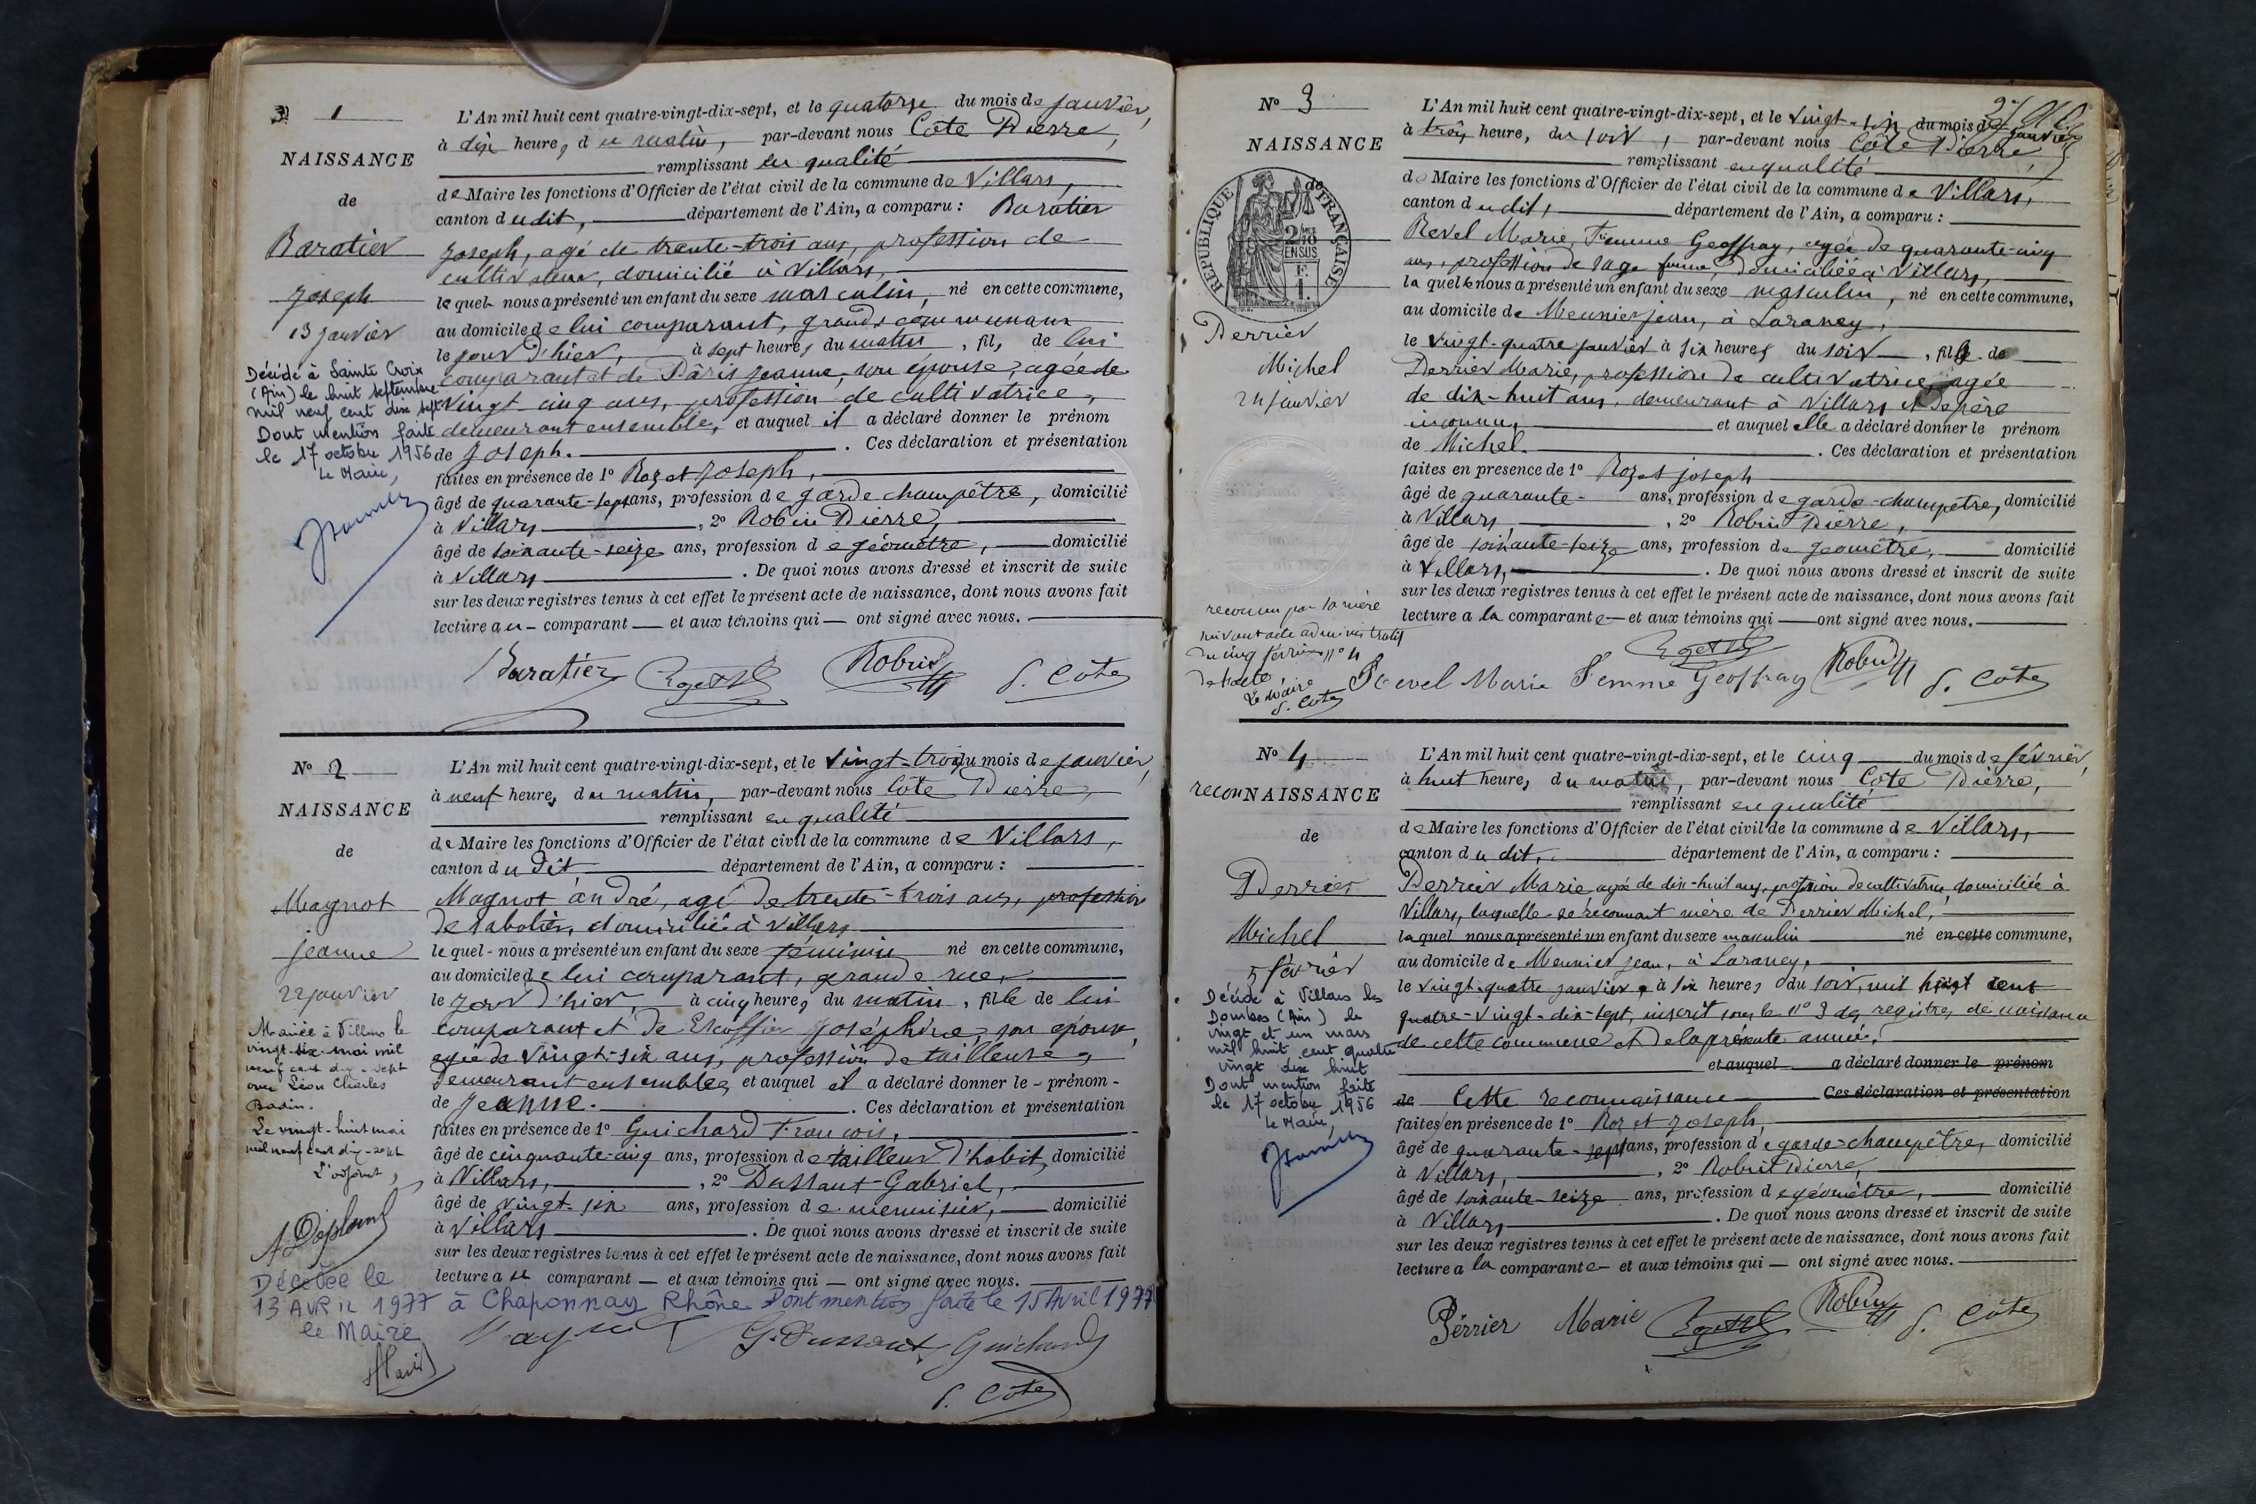 1
NAISSANCE
de
Baratier
Joseph
13 janvier
Décédé à Sainte Croix
(Ain) le huit septembre
mil neuf cent dix sept
Dont mention faite
le 17 octobre 1956
Le Maire,
L'An mil huit cent quatre-vingt-dix-sept, et le quatorze du mois de janvier,
à dix heures du matin, par-devant nous Côte Pierre,
remplissant en qualité
de Maire les fonctions d'Officier de l'état civil de la commune de Villars,
canton dudit, département de l'Ain, a comparu : Baratier
Joseph, agé de trente-trois ans, profession de
cultivateur, domicilié à Villars,
lequel nous a présenté un enfant du sexe masculin, né en cette commune,
au domicile de lui comparant, grands communaux
le jour d'hier, à sept heures du matin, fils de lui
comparant et de Pâris Jeanne, son épouse, agée de
vingt-cinq ans, profession de cultivatrice,
demeurant ensemble, et auquel il a déclaré donner le prénom
de Joseph. Ces déclaration et présentation
faites en présence de 1° Rozet Joseph,
âgé de quarante-sept ans, profession de garde champêtre, domicilié
à Villars, 2° Robin Pierre,
âgé de soixante-seize ans, profession de géomètre, domicilié
à Villars. De quoi nous avons dressé et inscrit de suite
sur les deux registres tenus à cet effet le présent acte de naissance, dont nous avons fait
lecture au comparant et aux témoins qui ont signé avec nous.
Baratier Rozet Robin P. Côte
N° 2
NAISSANCE
de
Magnot
Jeanne
22 janvier
Mariée à Villars le
vingt-six mai mil
neuf cent dix-sept
avec Léon Charles
Badin.
Le vingt-huit mai
mil neuf cent dix-sept
L'adjoint,
L'An mil huit cent quatre-vingt-dix-sept, et le vingt-trois du mois de janvier,
à neuf heures du matin, par-devant nous Côte Pierre,
remplissant en qualité
de Maire les fonctions d'Officier de l'état civil de la commune de Villars,
canton dudit, département de l'Ain, a comparu :
Magnot André, agé de trente-trois ans, profession
de sabotier, domicilié à Villars
lequel nous a présenté un enfant du sexe féminin né en cette commune,
au domicile de lui comparant, grande rue,
le jour d'hier, à cinq heures du matin, fille de lui
comparant et de Escoffier Joséphine, son épouse,
agée de vingt-six ans, profession de tailleuse,
demeurant ensemble, et auquel il a déclaré donner le prénom
de Jeanne. Ces déclaration et présentation
faites en présence de 1° Guichard François,
âgé de cinquante-cinq ans, profession de tailleur d'habit, domicilié
à Villars, 2° Dussaut Gabriel,
âgé de vingt-six ans, profession de menuisier, domicilié
à Villars. De quoi nous avons dressé et inscrit de suite
sur les deux registres tenus à cet effet le présent acte de naissance, dont nous avons fait
lecture au comparant et aux témoins qui ont signé avec nous.
Décédée le
13 AVRIL 1977 à Chaponnay Rhône Dont mention faite le 15 Avril 1977
le Maire
Magnot G. Dussaut Guichard
P. Côte
N° 3
NAISSANCE
de
RÉPUBLIQUE FRANÇAISE
Perrier
Michel
24 janvier
reconnu par la mère
suivant acte administratif
du cinq février n° 4
Le Maire
P. Côte
L'An mil huit cent quatre-vingt-dix-sept, et le vingt-six du mois de janvier
à trois heure, du soir, par-devant nous Côte Pierre
remplissant en qualité
de Maire les fonctions d'Officier de l'état civil de la commune de Villars,
canton dudit, département de l'Ain, a comparu :
Revel Marie, Femme Geoffray, agée de quarante-cinq
ans, profession de sage femme, domiciliée à Villars,
laquelle nous a présenté un enfant du sexe masculin, né en cette commune,
au domicile de Meunier Jean, à Larancy,
le vingt-quatre janvier à six heures du soir, fils de
Perrier Marie, profession de cultivatrice, agée
de dix-huit ans, demeurant à Villars et de père
inconnu, et auquel elle a déclaré donner le prénom
de Michel. Ces déclaration et présentation
faites en présence de 1° Rozet Joseph
âgé de quarante- ans, profession de garde-champêtre, domicilié
à Villars, 2° Robin Pierre,
âgé de soixante-seize ans, profession de géomètre, domicilié
à Villars. De quoi nous avons dressé et inscrit de suite
sur les deux registres tenus à cet effet le présent acte de naissance, dont nous avons fait
lecture à la comparante et aux témoins qui ont signé avec nous.
Rozet
Revel Marie Femme Geoffray Robin P. Côte
N° 4
reconNAISSANCE
de
Perrier
Michel
5 février
Décédé à Villars les
Dombes (Ain) le
vingt et un mars
mil huit cent quatre
vingt dix huit
Dont mention faite
le 17 octobre 1956
Le Maire,
L'An mil huit cent quatre-vingt-dix-sept, et le cinq du mois de février,
à huit heures du matin, par-devant nous Côte Pierre,
remplissant en qualité
de Maire les fonctions d'Officier de l'état civil de la commune de Villars,
canton dudit, département de l'Ain, a comparu :
Perrier Marie agée de dix-huit ans, profession de cultivatrice, domiciliée à
Villars, laquelle se reconnait mère de Perrier Michel,
laquel nous a présenté un enfant du sexe masculin né en cette commune,
au domicile de Meunier Jean, à Larancy,
le vingt-quatre janvier, à six heures du soir, mil huit cent
quatre-vingt-dix-sept, inscrit sous le n° 3 des registres de naissance
de cette commune et de la présente année.
et auquel a déclaré donner le prénom
de Cette reconnaissance Ces déclaration et présentation
faites en présence de 1° Rozet Joseph,
âgé de quarante-sept ans, profession de garde-champêtre, domicilié
à Villars, 2° Robin Pierre,
âgé de soixante-seize ans, profession de géomètre, domicilié
à Villars. De quoi nous avons dressé et inscrit de suite
sur les deux registres tenus à cet effet le présent acte de naissance, dont nous avons fait
lecture à la comparante et aux témoins qui ont signé avec nous.
Périer Marie Rozet Robin P. Côte